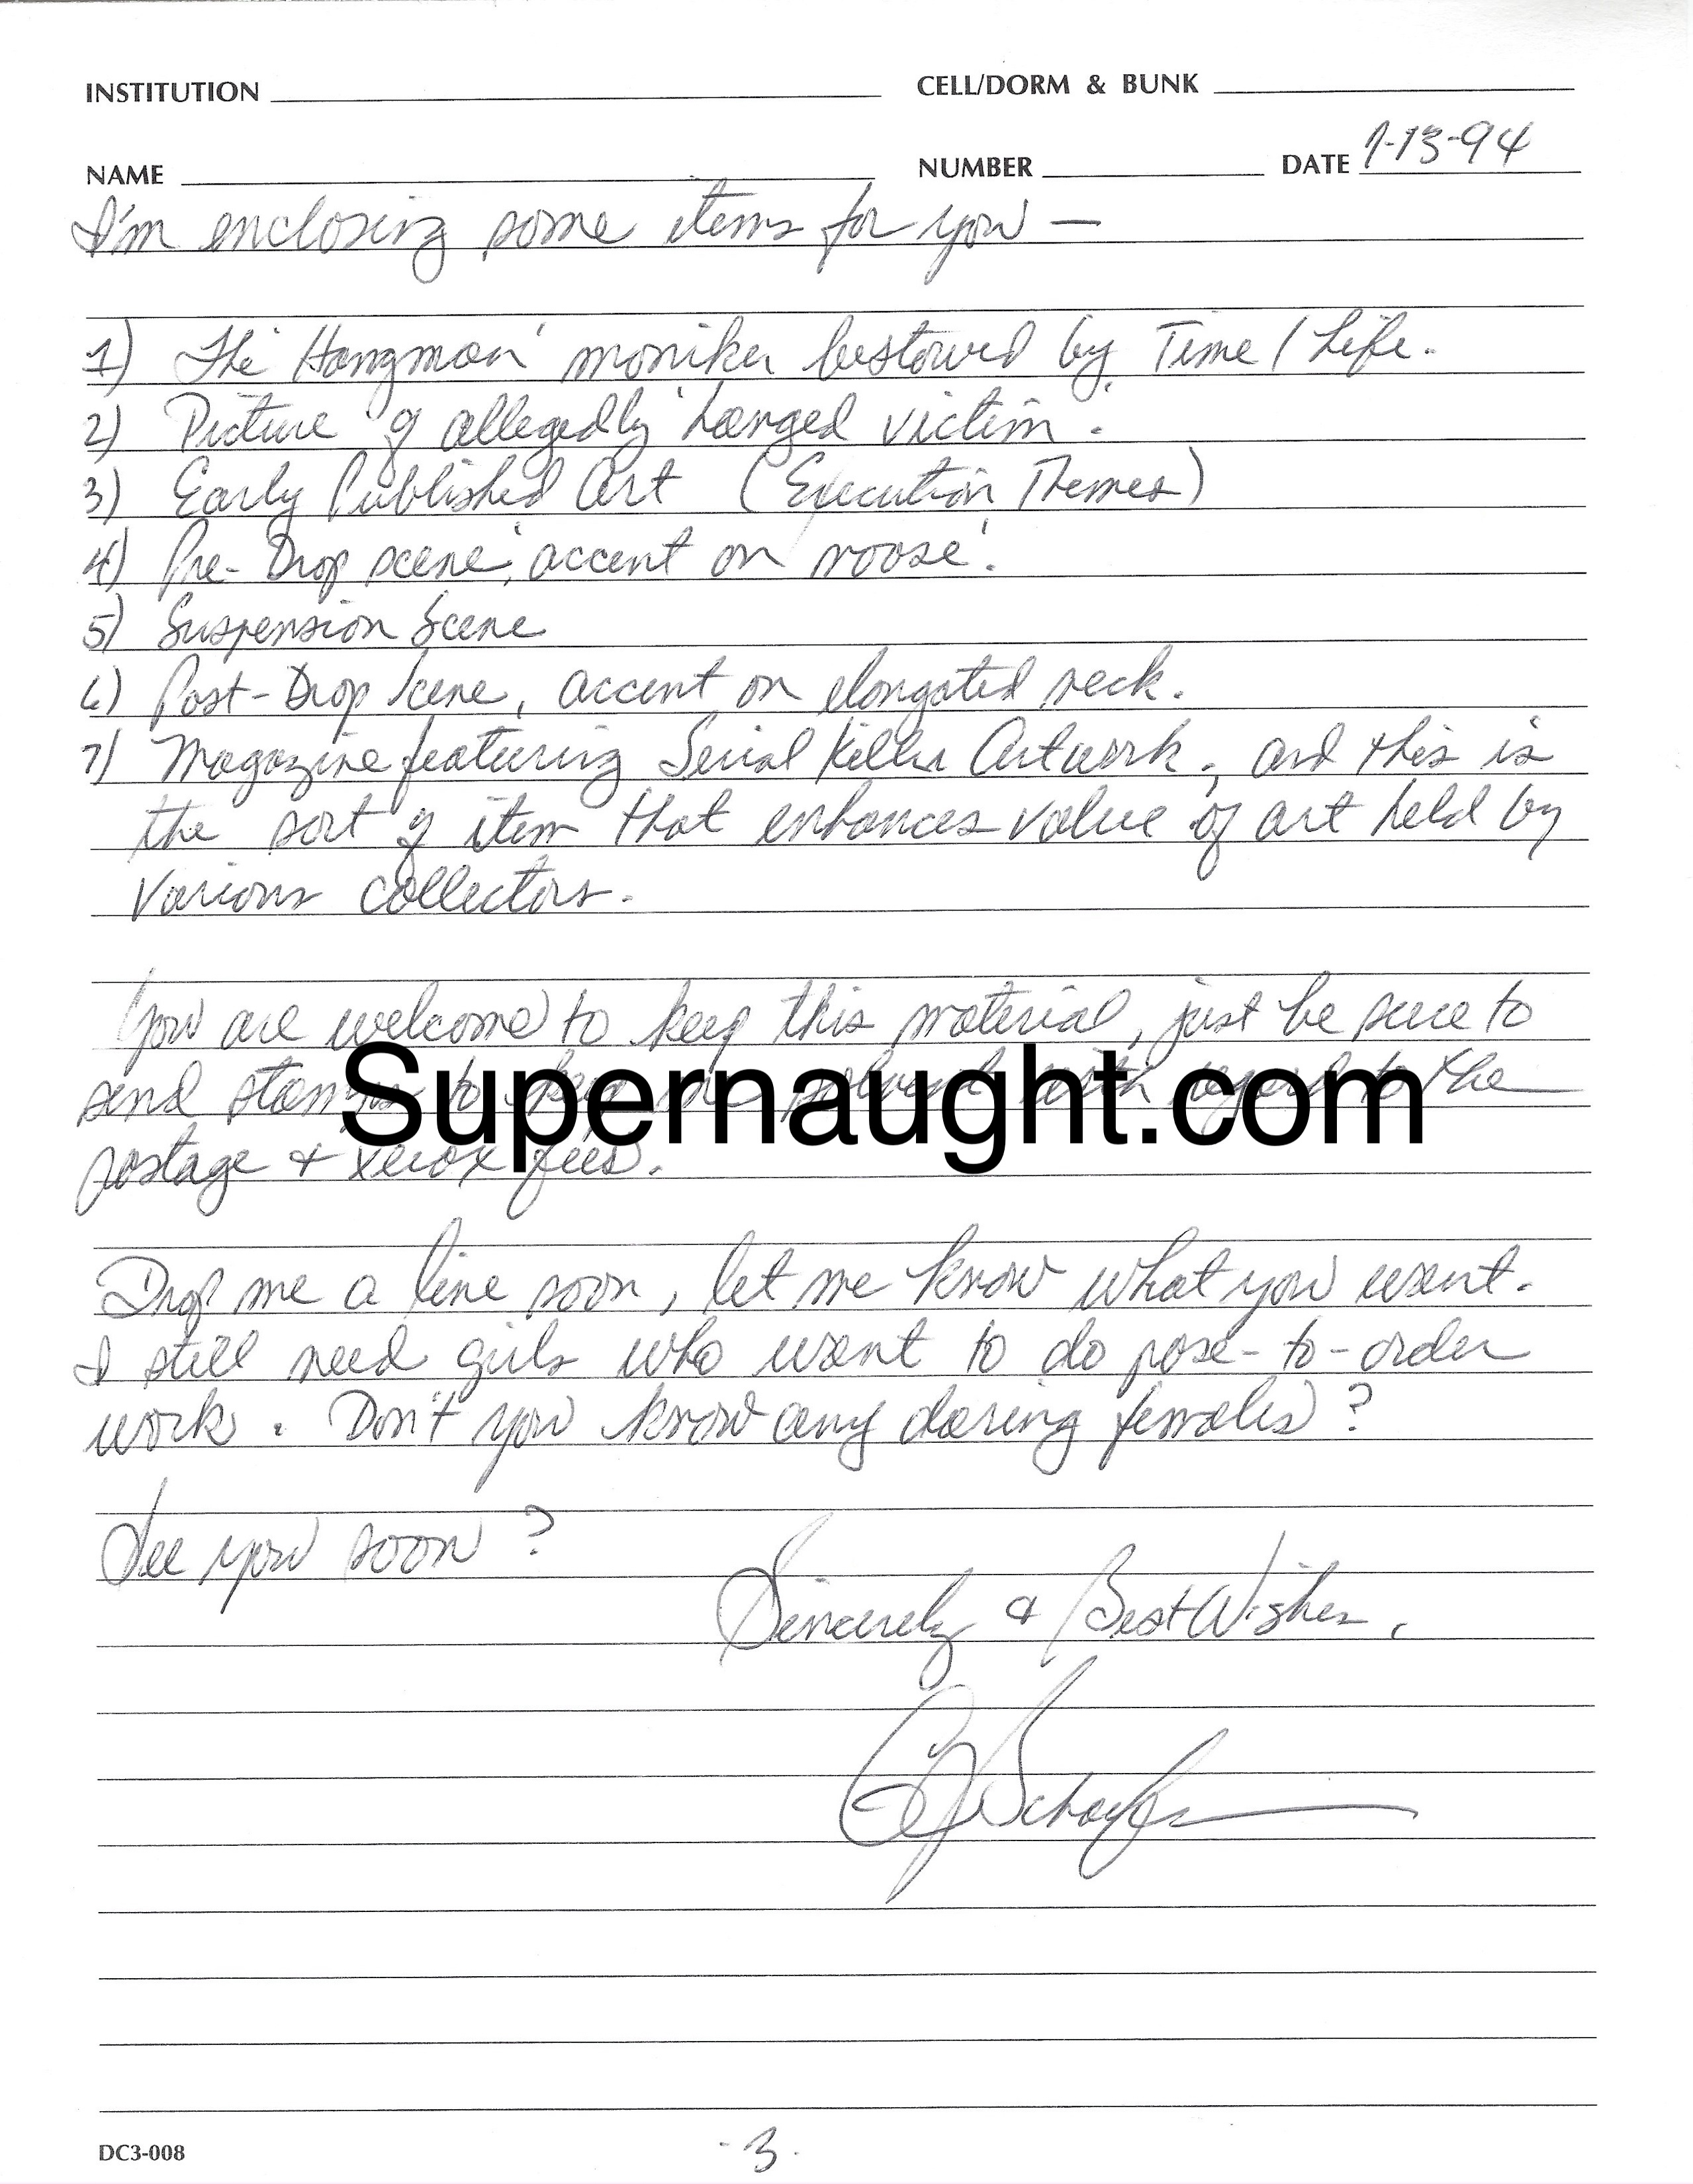 INSTITUTION CELL/DORM & BUNK
NAME NUMBER DATE 1-13-94
I'm enclosing some items for you —
1) The 'Hangman' moniker bestowed by Time/Life.
2) Picture of 'allegedly' hanged victim.
3) Early Published Art (Execution Themes)
4) Pre-Drop scene, 'accent on noose'.
5) Suspension Scene
6) Post-Drop Scene, accent on elongated neck.
7) Magazine featuring Serial Killer Artwork, and this is
the sort of item that enhances value of art held by
various collectors.
You are welcome to keep this material, just be sure to
send stamps to keep me solvent with regard to the
Supernaught.com
postage & xerox fees.
Drop me a line soon, let me know what you want.
I still need girls who want to do pose-to-order
work. Don't you know any daring females?
See you soon?
Sincerely & Best Wishes,
GJ Schaefer
DC3-008 -3-